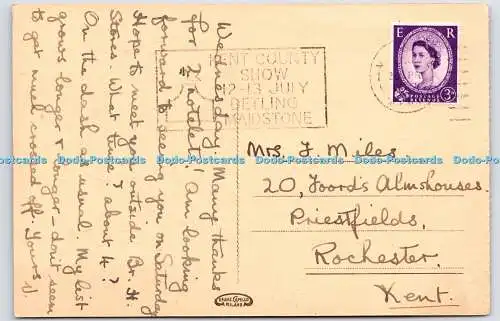 Wednesday. Many thanks
for 2 notelets! Am looking
forward to seeing you on Saturday
Hope to meet you outside Br. H.
Stores. What time? about 4?
On the dash as usual. My list
grows longer & longer - don't seem
to get much crossed off. Yours
KENT COUNTY
SHOW
12-13 JULY
DETLING
MAIDSTONE
E R
POSTAGE REVENUE
3D
Mrs. F. Miles,
20, Foord's Almshouses.
Priestfields,
Rochester.
Kent.
Dodo-Postcards Dodo-Postcards Dodo-Postcards Dodo-Postcards Dodo-Postcards Dodo-Postcards
MILANO